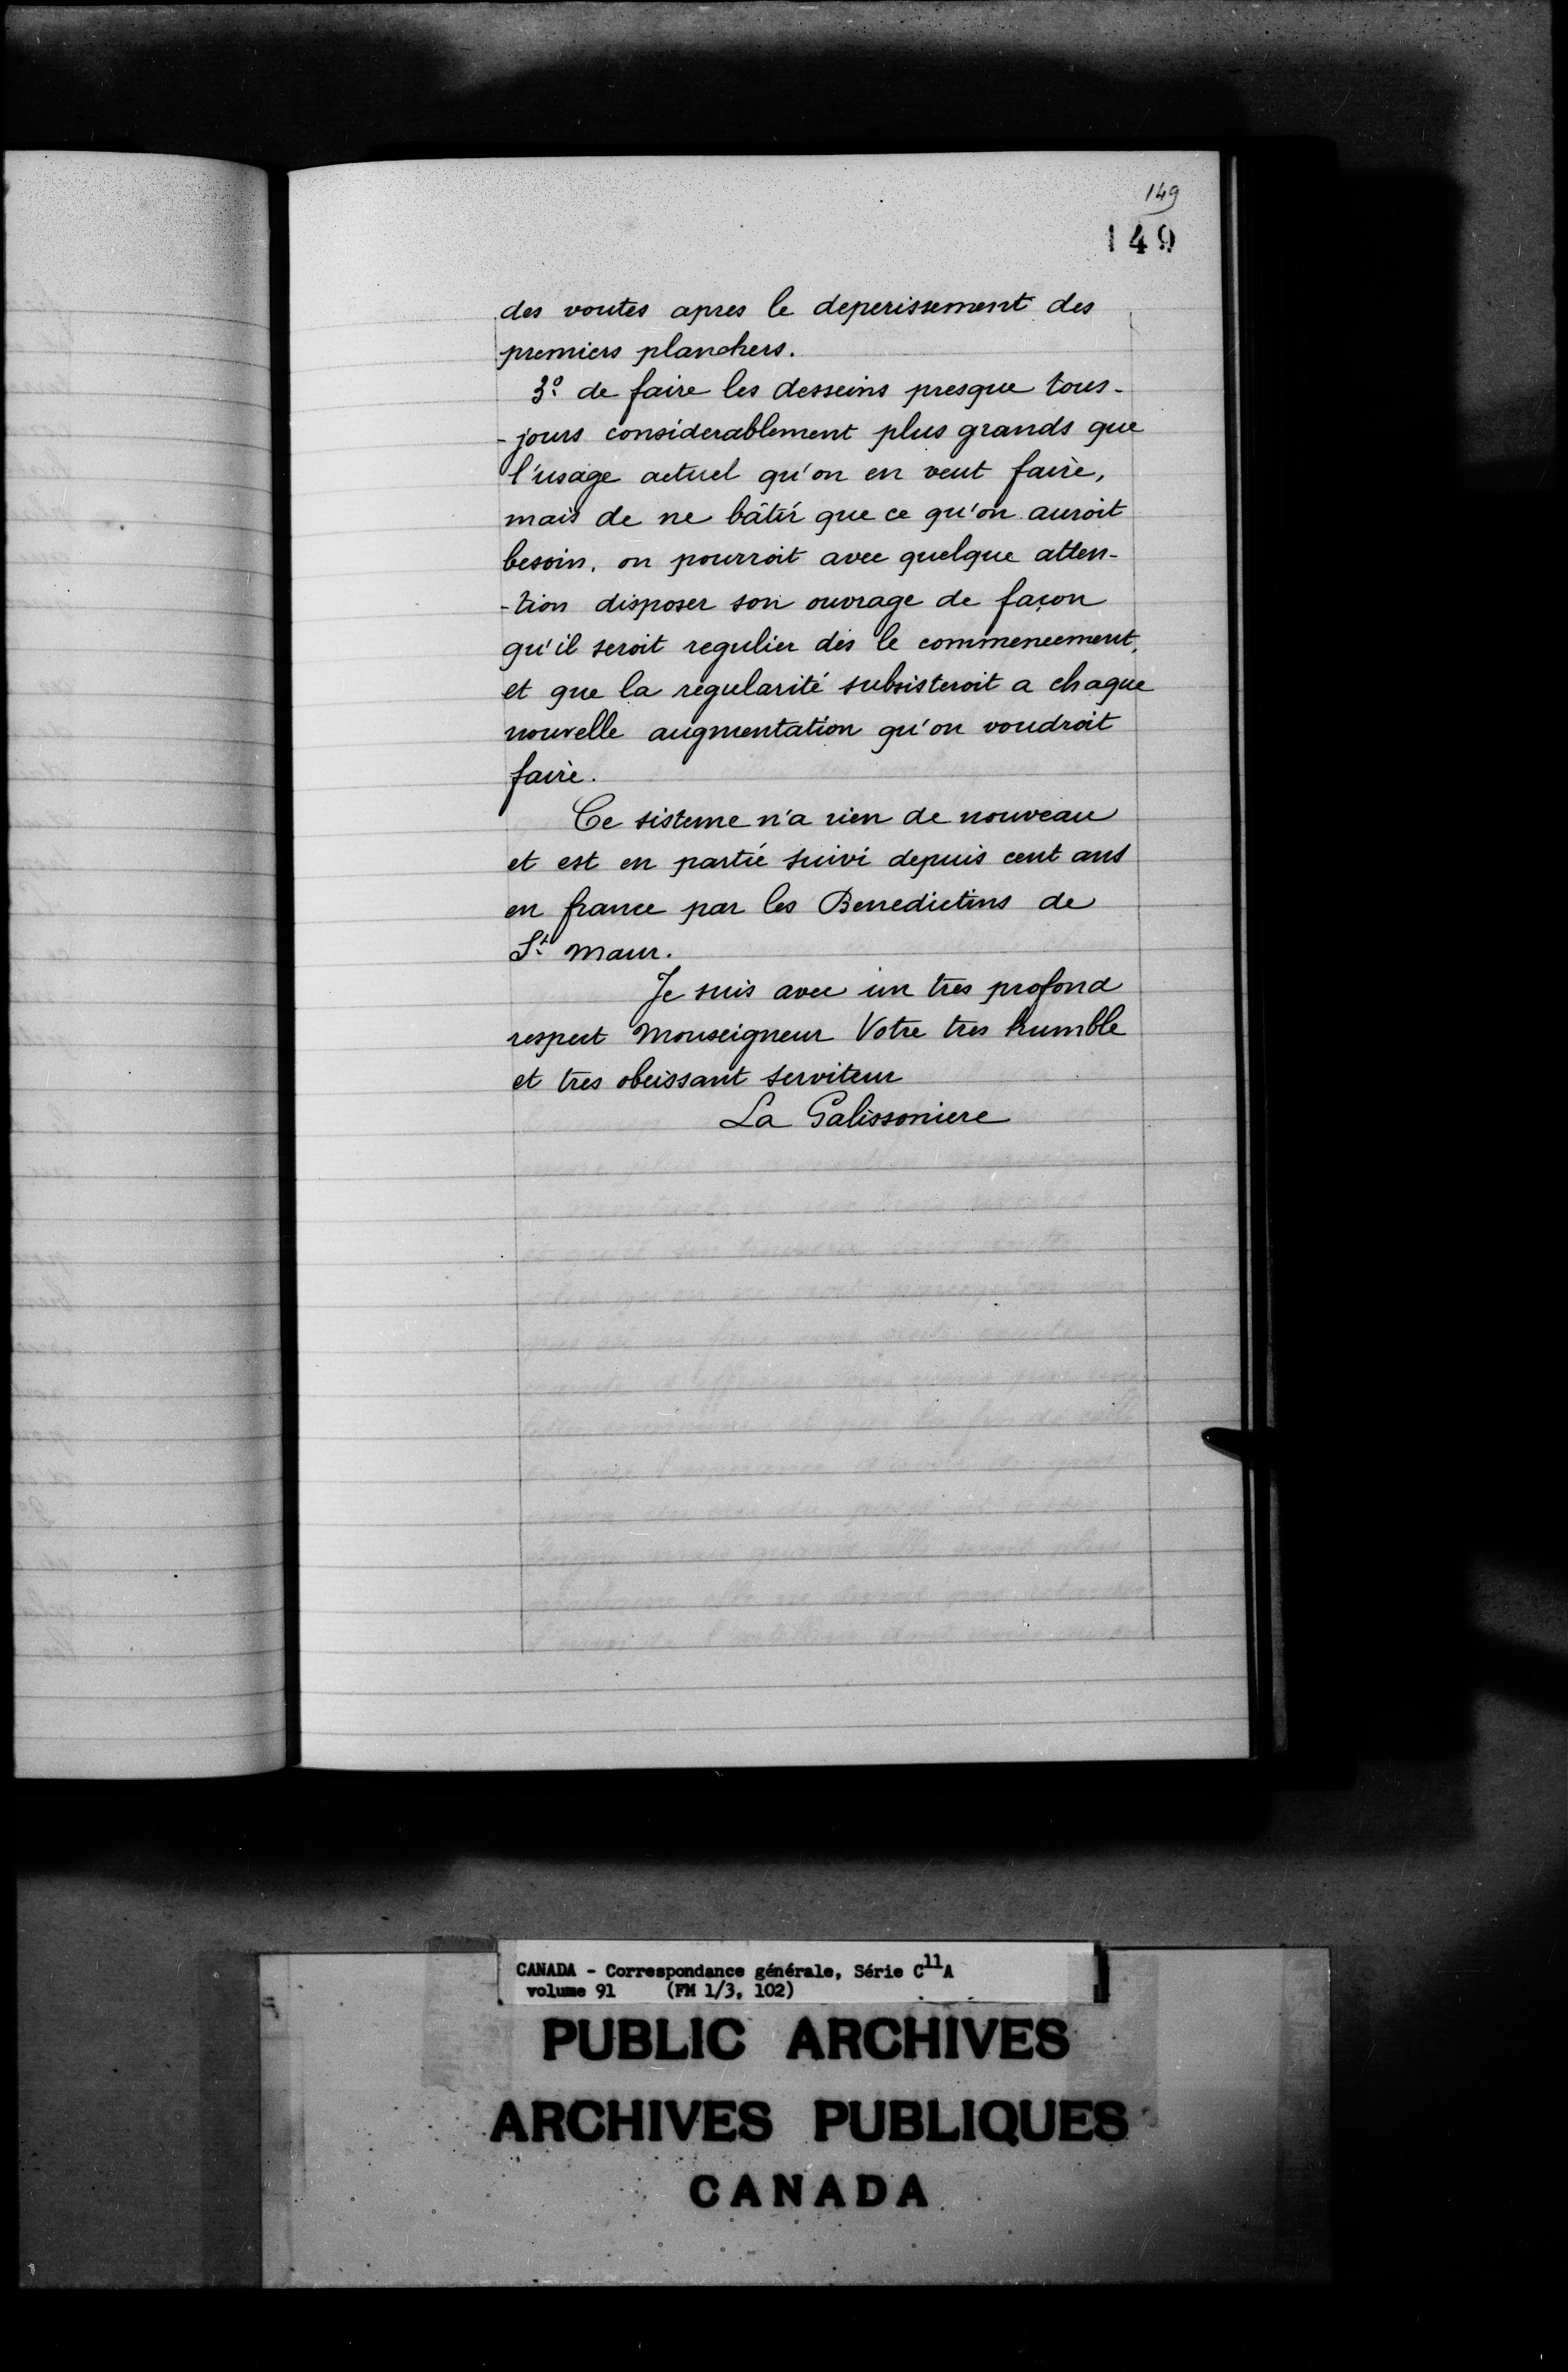 149
149
des voutes apres le deperissement des
premiers planchers.
3º de faire les desseins presque tous-
-jours considerablement plus grands que
l'usage actuel qu'on en veut faire,
mais de ne bâtir que ce qu'on auroit
besoin. on pourroit avec quelque atten-
-tion disposer son ouvrage de façon
qu'il seroit regulier dès le commencement,
et que la régularité subsisteroit a chaque
nouvelle augmentation qu'on voudroit
faire.
Ce sisteme n'a rien de nouveau
et est en partie suivi depuis cent ans
en france par les Benedictins de
St. Maur.
Je suis avec un tres profond
respect Monseigneur Votre tres humble
et tres obeissant serviteur
La Galissoniere
CANADA - Correspondance générale, Série C11A
volume 91 (FM 1/3, 102)
PUBLIC ARCHIVES
ARCHIVES PUBLIQUES
CANADA